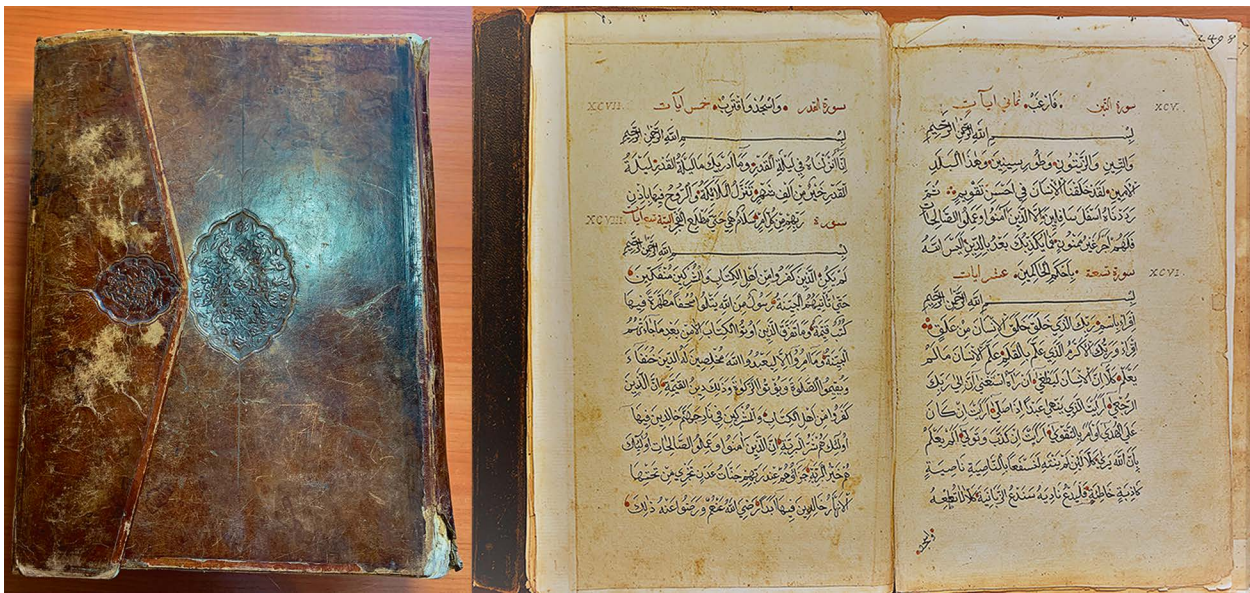 249
XCV. سورة التين • فارغب • ثماني ايات
بسم الله الرحمن الرحيم
والتين والزيتون وطور سينين وهذا البلد
الامين لقد خلقنا الانسان في احسن تقويم ثم
رددناه اسفل سافلين الا الذين امنوا وعملوا الصالحات
فلهم اجر غير ممنون فما يكذبك بعد بالدين اليس الله
XCVI. سورة تسعة • باحكم الحاكمين • عشر ايات
بسم الله الرحمن الرحيم
اقرا باسم ربك الذي خلق خلق الانسان من علق
اقرا وربك الاكرم الذي علم بالقلم علم الانسان ما لم
يعلم كلا ان الانسان ليطغى ان راه استغنى ان الى ربك
الرجعى ارايت الذي ينهى عبدا اذا صلى ارايت ان كان
على الهدى او امر بالتقوى ارايت ان كذب وتولى الم يعلم
بان الله يرى كلا لئن لم ينته لنسفعا بالناصية ناصية
كاذبة خاطئة فليدع ناديه سندع الزبانية كلا لا تطعه
سورة القدر • واسجد واقترب • خمس ايات XCVII.
بسم الله الرحمن الرحيم
انا انزلناه في ليلة القدر وما ادريك ما ليلة القدر ليلة
القدر خير من الف شهر تنزل الملائكة والروح فيها باذن
سورة ربهم من كل امر سلام هي حتى مطلع الفجر البينة ايات XCVIII.
بسم الله الرحمن الرحيم
لم يكن الذين كفروا من اهل الكتاب والمشركين منفكين
حتى تاتيهم البينة رسول من الله يتلوا صحفا مطهرة فيها
كتب قيمة وما تفرق الذين اوتوا الكتاب الا من بعد ما جاءتهم
البينة وما امروا الا ليعبدوا الله مخلصين له الدين حنفاء
ويقيموا الصلوة ويؤتوا الزكوة وذلك دين القيمة ان الذين
كفروا من اهل الكتاب والمشركين في نار جهنم خالدين فيها
اولئك هم شر البرية ان الذين امنوا وعملوا الصالحات اولئك
هم خير البرية جزاؤهم عند ربهم جنات عدن تجري من تحتها
الانهار خالدين فيها ابدا رضي الله عنهم ورضوا عنه ذلك